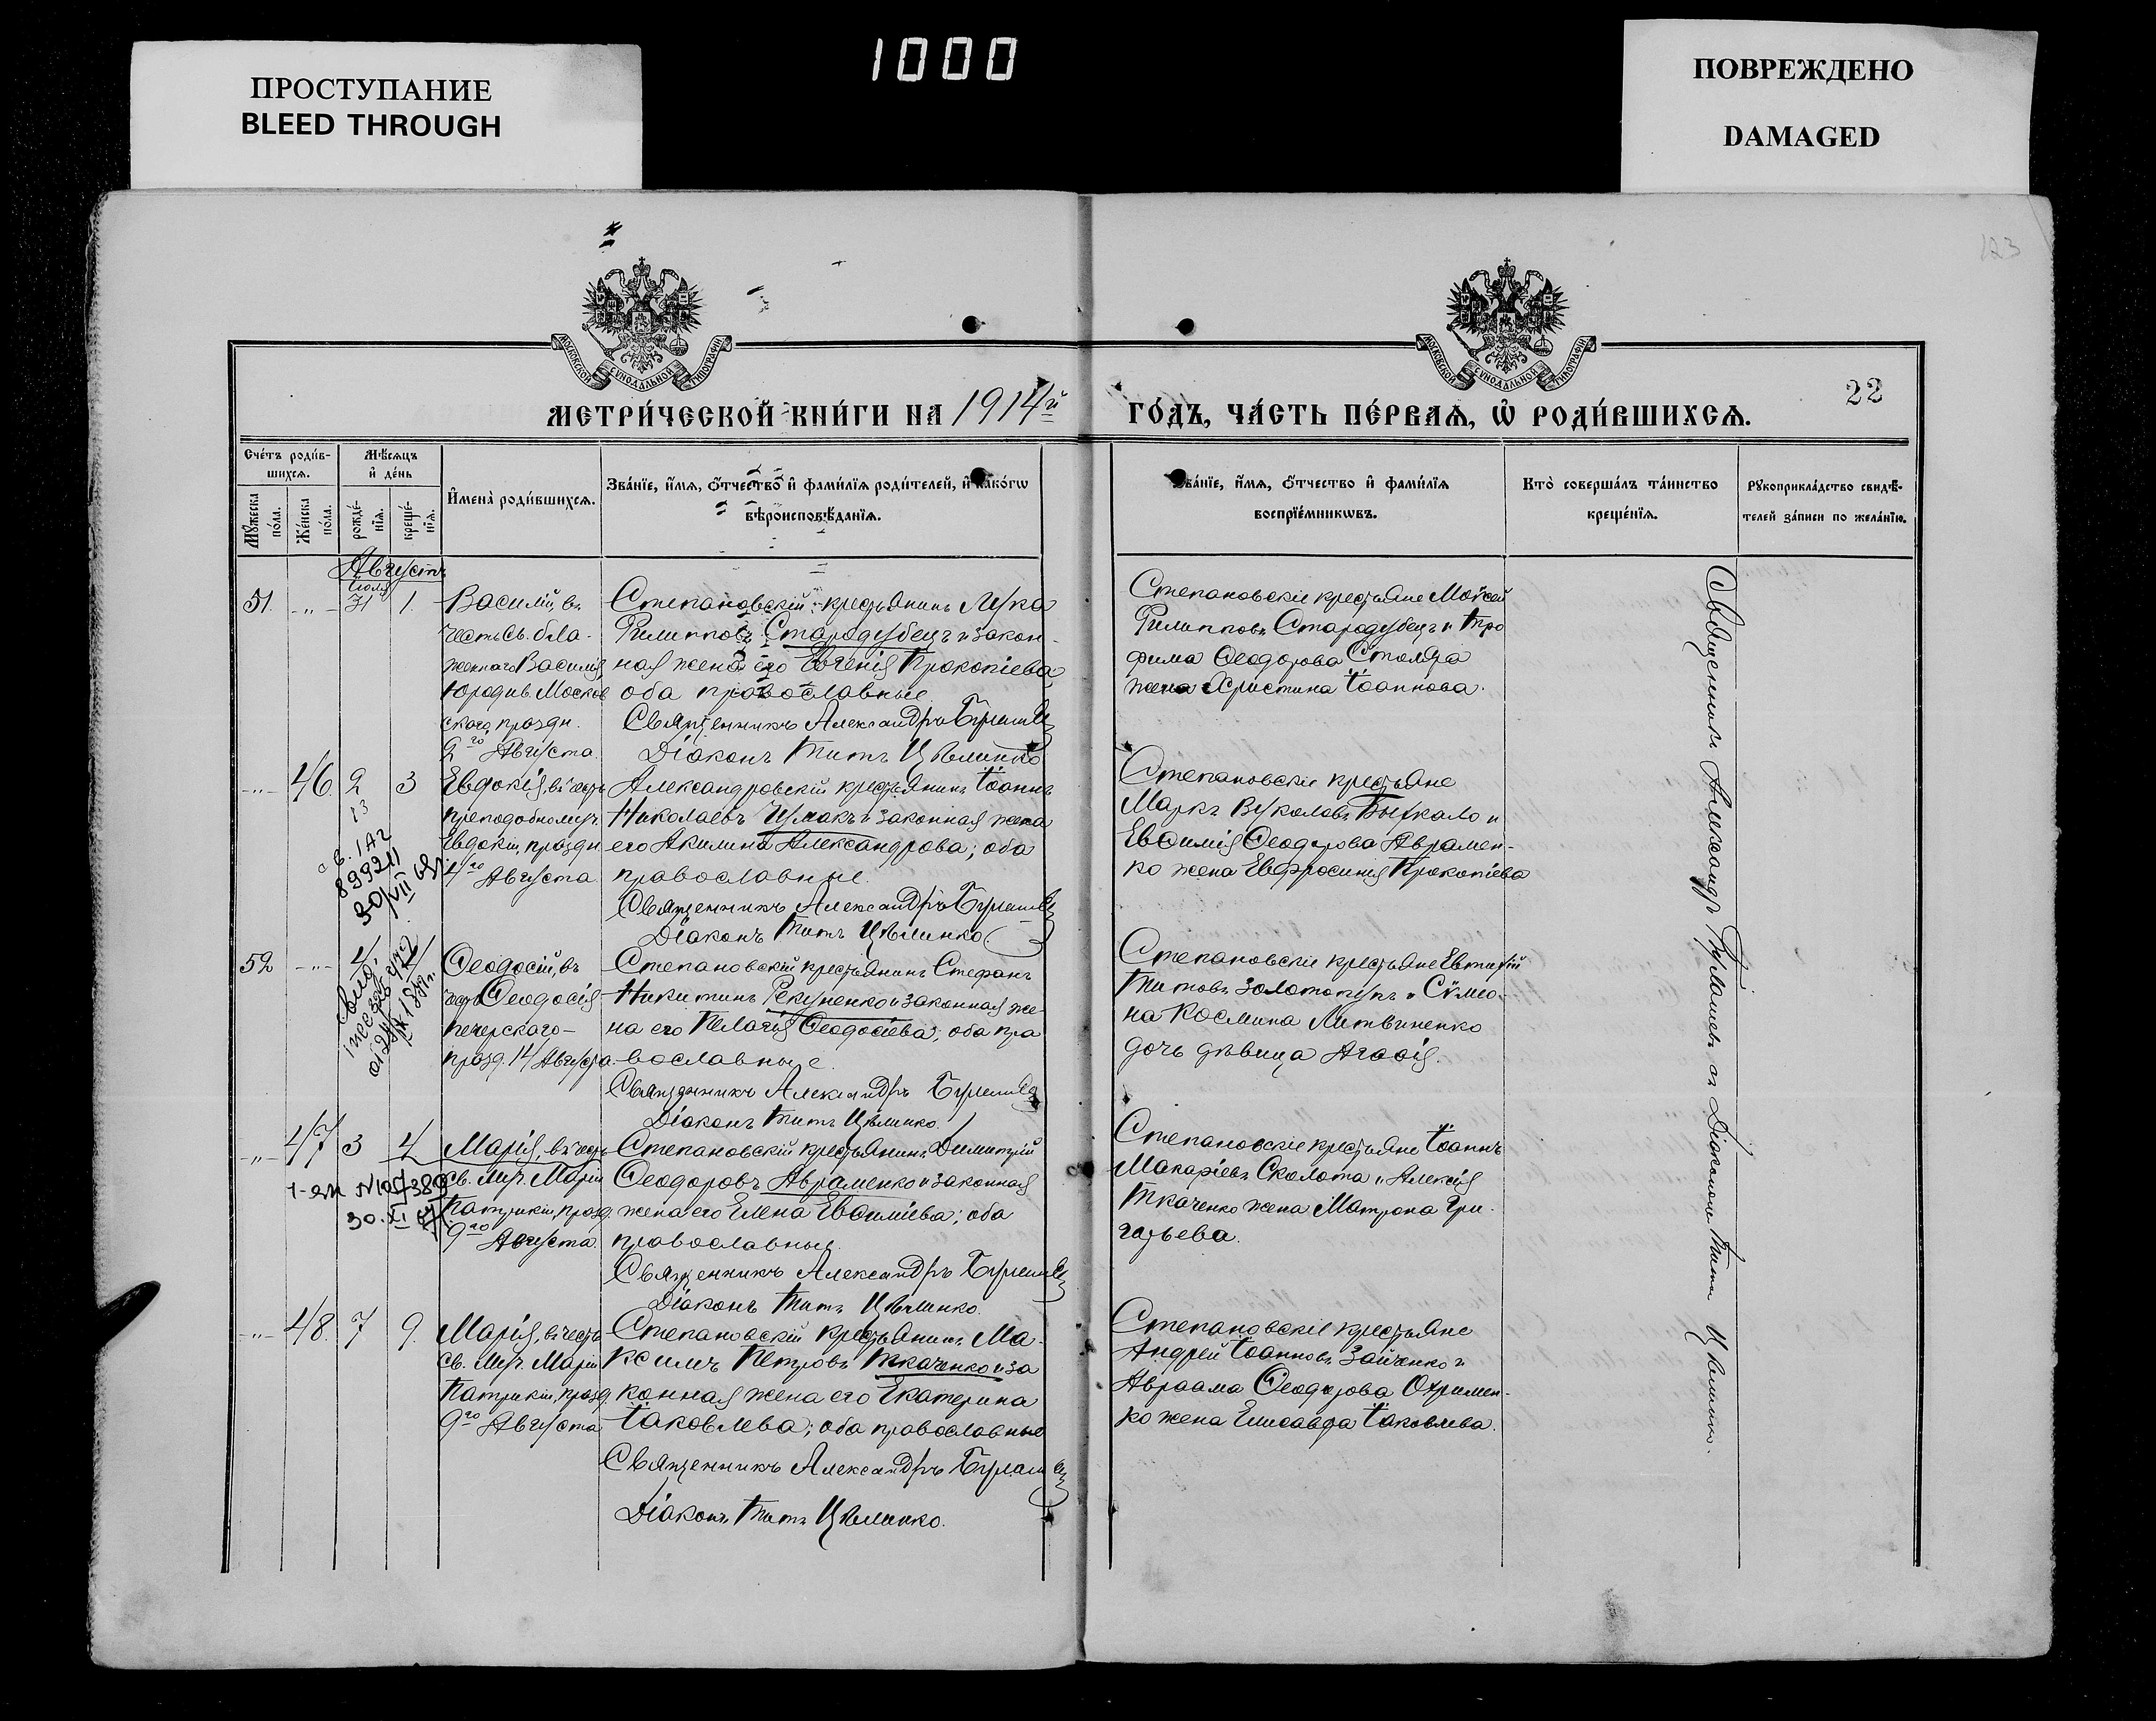 1000
ПРОСТУПАНИЕ
BLEED THROUGH
ПОВРЕЖДЕНО
DAMAGED
123
МОСКОВСКОЙ СѴНОДАЛЬНОЙ ТИПОГРАФІИ
МОСКОВСКОЙ СѴНОДАЛЬНОЙ ТИПОГРАФІИ
22
МЕТРИ́ЧЕСКОЙ КНИ́ГИ НА 1914й ГО́ДЪ, ЧА́СТЬ ПЕ́РВАѦ, Ѡ҆ РОДИ́ВШИХСѦ.
Сче́тъ роди́в-
шихсѧ.
Мѣ́сѧцъ
и҆ де́нь
Мꙋ́жеска
по́ла.
Же́нска
по́ла.
рожде́-
нїѧ.
креще́-
нїѧ.
И҆мена̀ роди́вшихсѧ.
Зва́нїе, и҆́мѧ, ѻ҆́тчество и҆ фами́лїѧ роди́телей, и҆ како́гѡ
вѣроисповѣ́данїѧ.
Зва́нїе, и҆́мѧ, ѻ҆́тчество и҆ фами́лїѧ
воспрїе́мникѡвъ.
Кто̀ соверша́лъ та́инство
креще́нїѧ.
Рꙋкоприкла́дство свидѣ́-
телей за́писи по жела́нїю.
Августъ
Іюля
51. -„- 31 1.
Василій, въ
честь Св. бла-
женнаго Василія,
Юродив. Москов
скаго, праздн.
2го Августа.
Степановскій крестьянинъ Лука
Филипповъ Стародубецъ и закон-
ная жена его Евгенія Прокопіева
оба православные
Священникъ Александръ
Діаконъ Титъ Цѣлинко
Степановскіе крестьяне Моѵсей
Филипповъ Стародубецъ и Тро
фима Ѳеодорова Столяра
жена Христина Іоаннова.
-„- 46. 2 3
13
899211
30/VII
Евдокія, въ честь
преподобномуч.
Евдокіи, праздн
4го Августа.
Александровскій крестьянинъ Іоаннъ
Николаевъ Чумакъ и законная жена
его Акилина Александрова; оба
православные.
Священникъ Александръ
Діаконъ Титъ Цѣлинко.
Степановскіе крестьяне
Маркъ Вуколовъ и
Евѳимія Ѳеодорова Аврамен-
ко жена Евфросинія Прокопіева
52 -„- 4
Ѳеодосій, въ
честь Ѳеодосія
Печерскаго-
празд. 14 Августа.
Степановскій крестьянинъ Стефанъ
Никитинъ Рекуненко и законная же-
на его Пелагія Ѳеодосіева; оба пра
вославные.
Священникъ Александръ
Діаконъ Титъ Цѣлинко.
Степановскіе крестьяне Евтихій
Титовъ Золотопупъ и Сѵмео-
на Космина Литвиненко
дочь дѣвица Агафія.
-„- 47 3 4
30.XI
Марія, въ честь
Св. Муч. Маріи
Патрикіи, празд.
9го Августа.
Степановскій крестьянинъ Димитрій
Ѳеодоровъ Авраменко и законная
жена его Елена Евѳиміева; оба
православные.
Священникъ Александръ
Діаконъ Титъ Цѣлинко.
Степановскіе крестьяне Іоаннъ
Макаріевъ Сколота и Алексія
Ткаченко жена Матрона Гри-
горьева.
-„- 48. 7 9.
Марія, въ честь
Св. Муч. Маріи
Патрикіи, празд.
9го Августа
Степановскій крестьянинъ Ма-
ксимъ Петровъ Ткаченко и за
конная жена его Екатерина
Іаковлева; оба православные
Священникъ Александръ
Діаконъ Титъ Цѣлинко.
Степановскіе крестьяне
Андрей Іоанновъ Зайченко и
Авраама Ѳеодорова Охримен-
ко жена Елисавета Іаковлева.
Священникъ Александръ съ Діакономъ Титъ Цѣлинко.